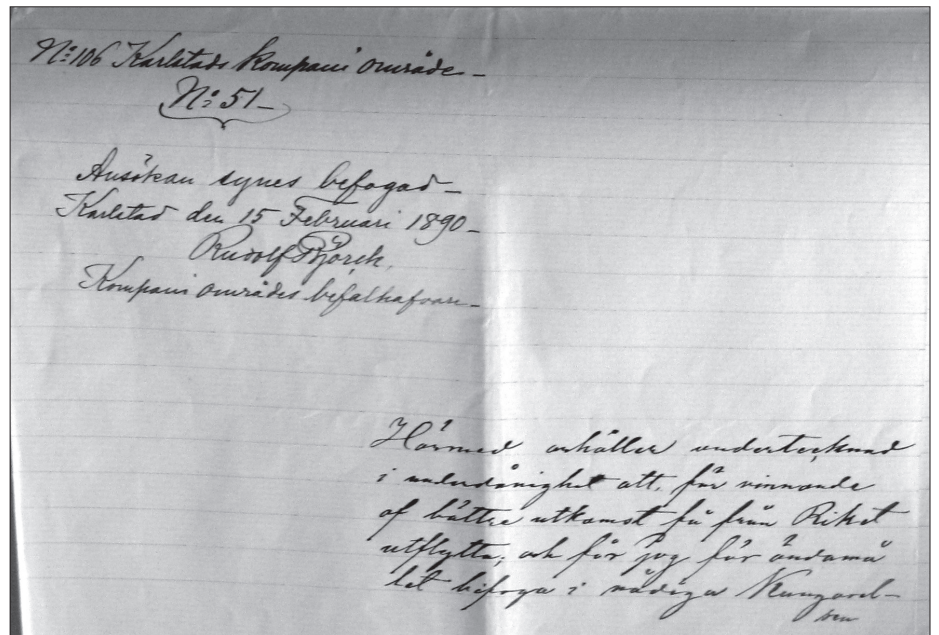 N:o 106 Karlstads kompani område –
N:o 51 –
Ansökan synes befogad –
Karlstad den 15 Februari 1890 –
Rudolf Björck.
Kompani områdes befälhafvare –
Härmed anhåller undertecknad
i underdånighet att, för vinnande
af bättre utkomst få från Riket
utflytta, och får jag för ändamå
let bifoga i nådiga Kungörel-
sen